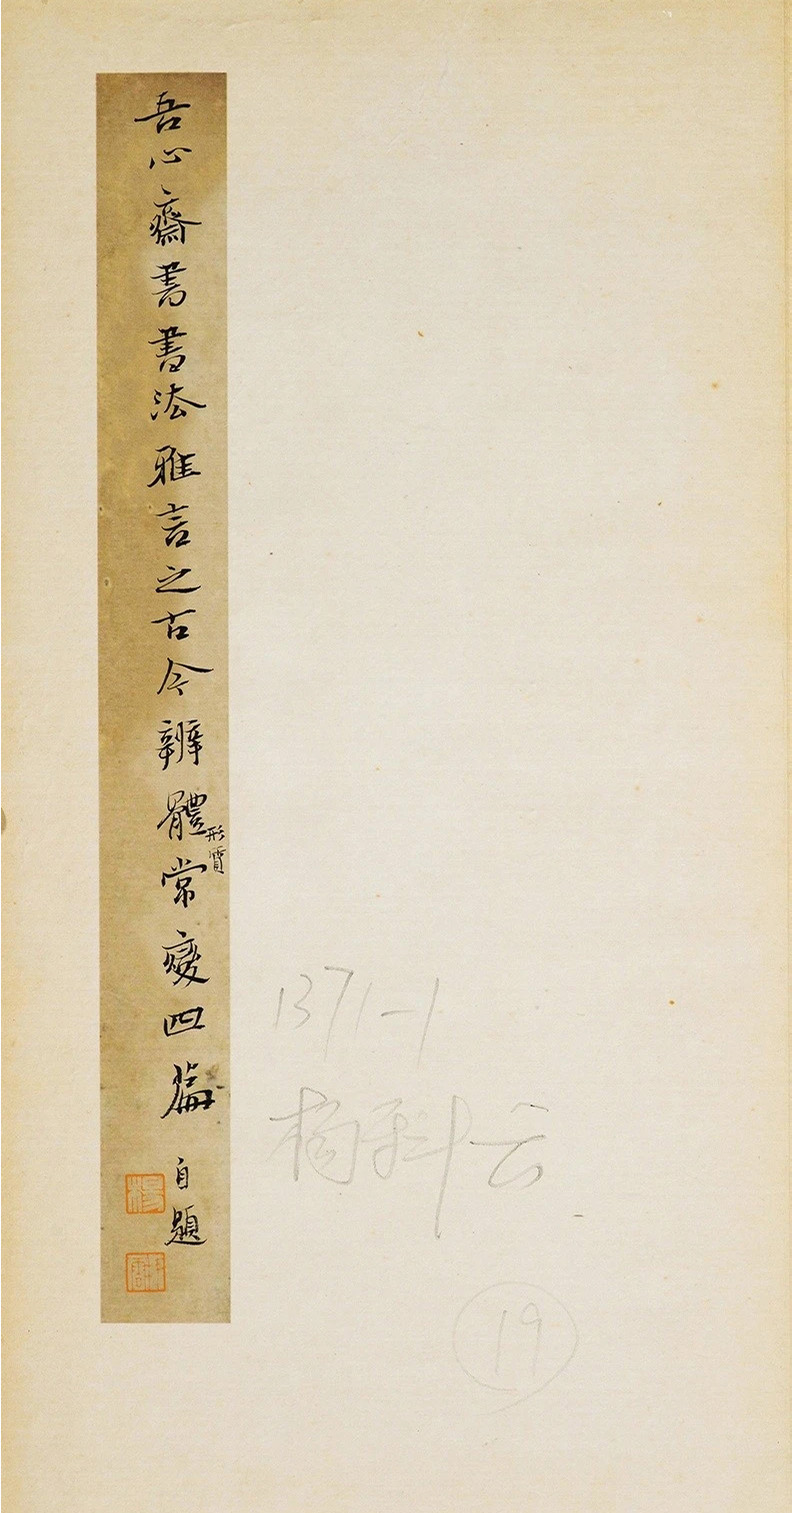 吾心齋書書法雅言之古今辨體形質常變四篇
自題
1371-1
杨科云
19